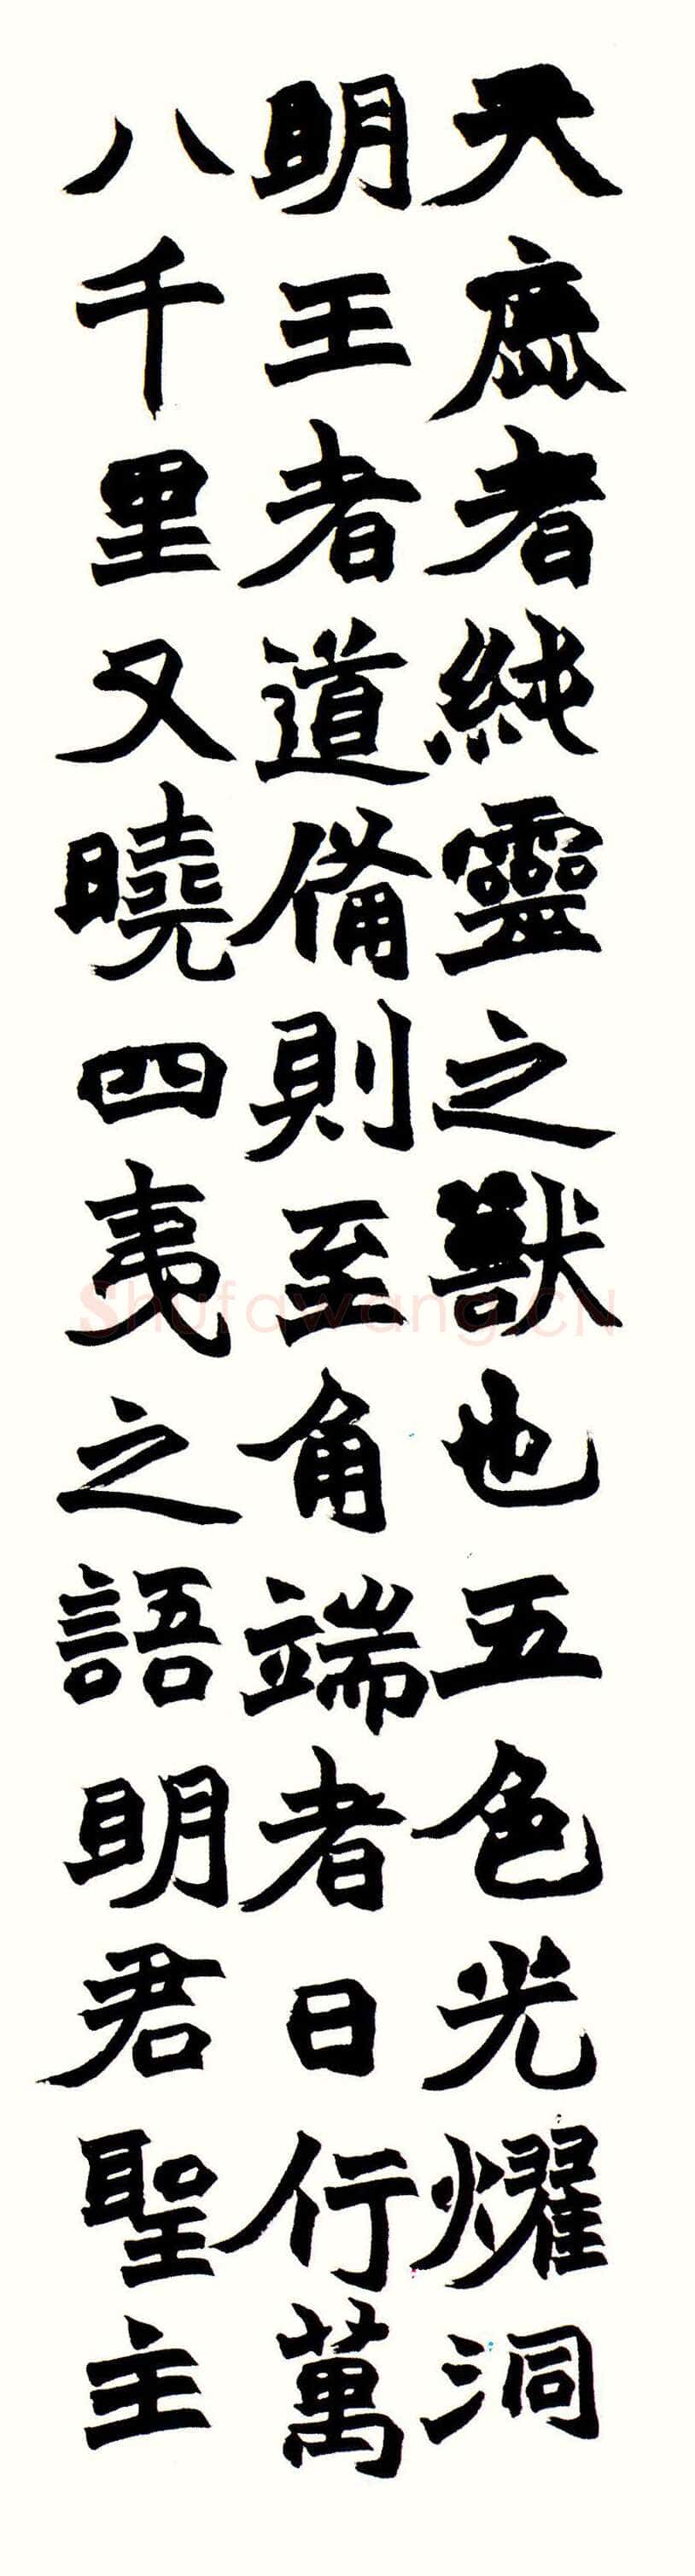 天鹿者純靈之獸也五色光耀洞
明王者道備則至角端者日行萬
八千里又曉四夷之語明君聖主
Shufawang.CN